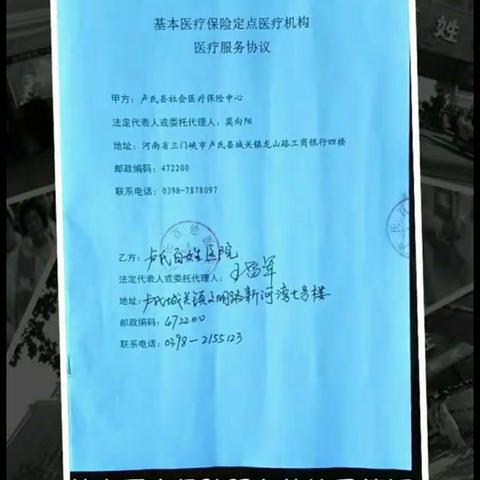 基本医疗保险定点医疗机构
医疗服务协议
甲方：卢氏县社会医疗保险中心
法定代表人或委托代理人：莫向阳
地址：河南省三门峡市卢氏县城关镇龙山路工商银行四楼
邮政编码：472200
联系电话：0398-7878097
乙方：卢氏百姓医院
法定代表人或委托代理人：
地址：卢氏城关镇文明路新河湾七号楼
邮政编码：472200
联系电话：0398-2155123
姓